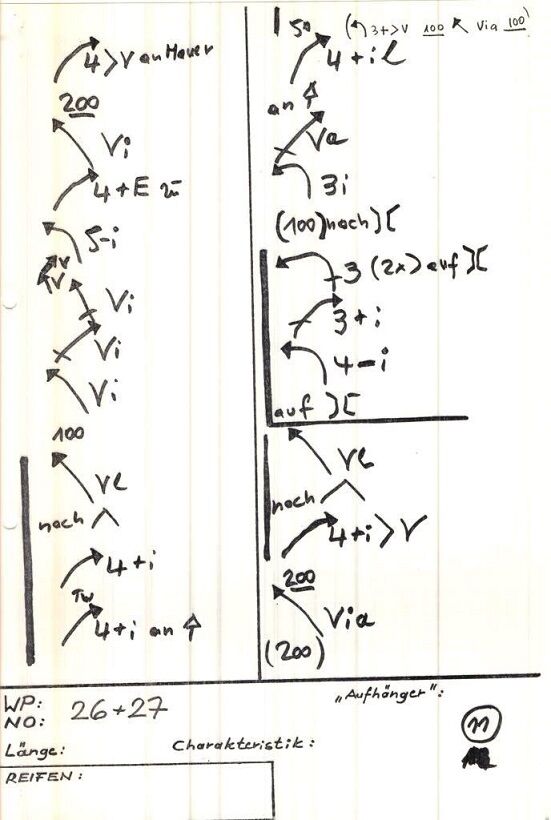 4 > V an Mauer
200
Vi
4 + E
5 - i
Vi
Vi
Vi
100
Vl
noch
4 + i
4 + i an
50
( 3 + > V 100 Via 100 )
4 + i l
an
Va
3 i
(100) noch ) (
+ 3 (2x) auf ) (
3 + i
4 - i
auf ) (
Vl
noch
4 + i > V
200
Via
(200)
WP: 26 + 27
NO:
"Aufhänger":
11
Länge:
Charakteristik:
REIFEN: